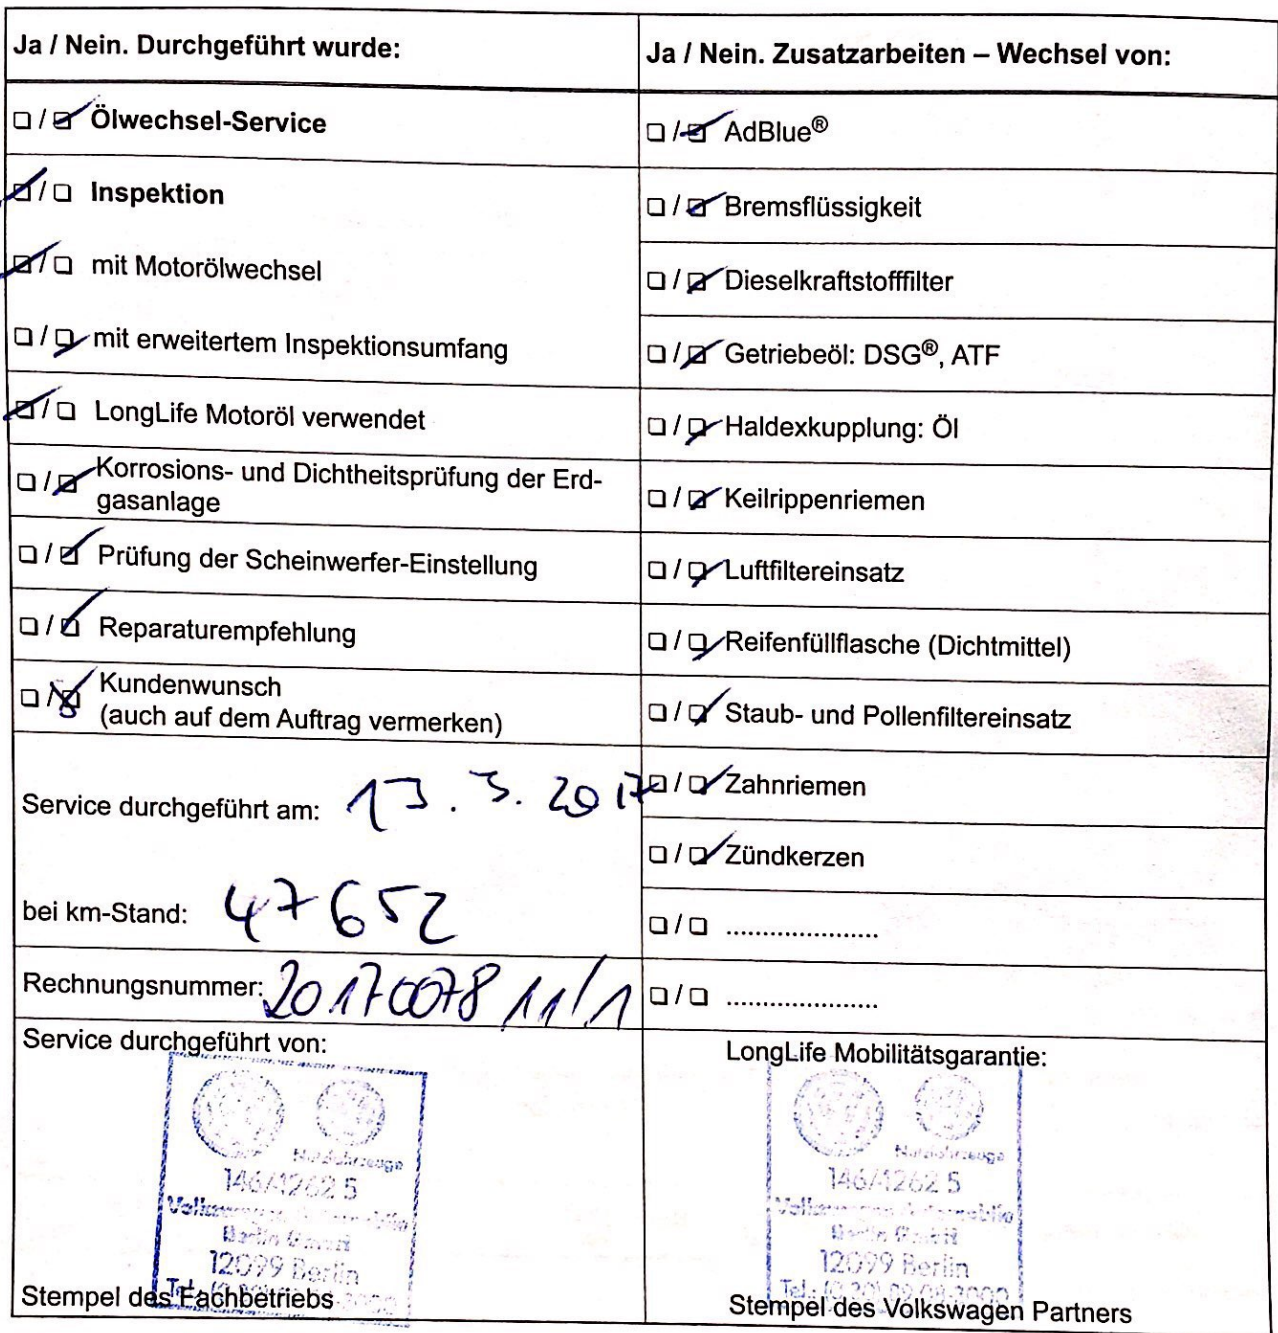 Ja / Nein. Durchgeführt wurde:
□ / ☑ Ölwechsel-Service
☑ / □ Inspektion
☑ / □ mit Motorölwechsel
□ / ☑ mit erweitertem Inspektionsumfang
☑ / □ LongLife Motoröl verwendet
□ / ☑ Korrosions- und Dichtheitsprüfung der Erd-
gasanlage
□ / ☑ Prüfung der Scheinwerfer-Einstellung
□ / ☑ Reparaturempfehlung
□ / ☑ Kundenwunsch
(auch auf dem Auftrag vermerken)
Service durchgeführt am: 13. 3. 2017
bei km-Stand: 47652
Rechnungsnummer: 2017007811/1
Service durchgeführt von:
Nutzfahrzeuge
146/1262 5
Volkswagen Automobile
Berlin GmbH
12099 Berlin
Tel.
Stempel des Fachbetriebs
Ja / Nein. Zusatzarbeiten – Wechsel von:
□ / ☑ AdBlue®
□ / ☑ Bremsflüssigkeit
□ / ☑ Dieselkraftstofffilter
□ / ☑ Getriebeöl: DSG®, ATF
□ / ☑ Haldexkupplung: Öl
□ / ☑ Keilrippenriemen
□ / ☑ Luftfiltereinsatz
□ / ☑ Reifenfüllflasche (Dichtmittel)
□ / ☑ Staub- und Pollenfiltereinsatz
□ / ☑ Zahnriemen
□ / ☑ Zündkerzen
□ / □ .....................
□ / □ .....................
LongLife Mobilitätsgarantie:
Nutzfahrzeuge
146/1262 5
Volkswagen Automobile
Berlin GmbH
12099 Berlin
Tel.
Stempel des Volkswagen Partners